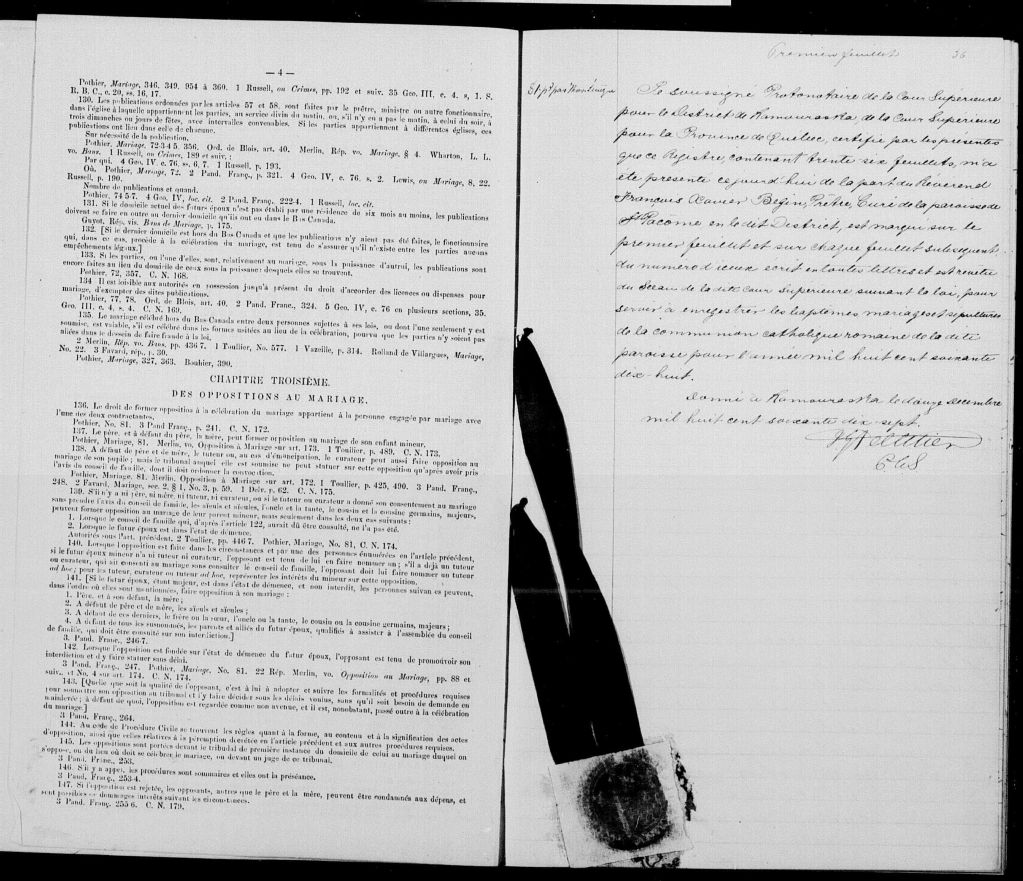 — 4 —
Pothier, Mariage, 346, 349, 954 à 360. 1 Russell, on Crimes, pp. 192 et suiv. 35 Geo. III, c. 4, s, 1. S.
R. B. C., c. 20, ss. 16, 17.
130. Les publications ordonnées par les articles 57 et 58, sont faites par le prêtre, ministre ou autre fonctionnaire,
dans l'église à laquelle appartiennent les parties, au service divin du matin, ou, s'il n'y en a pas le matin, à celui du soir, à
trois dimanches ou jours de fêtes, avec intervalles convenables. Si les parties appartiennent à différentes églises, ces
publications ont lieu dans celle de chacune.
Sur nécessité de la publication.
Pothier, Mariage, 72-3-4 5. 356. Ord. de Blois, art. 40. Merlin, Rép. vo. Mariage, § 4. Wharton, L. L.
vo. Bans. 1 Russell, on Crimes, 189 et suiv. :
Par qui. 4 Geo. IV, c. 76, ss. 6, 7. 1 Russell, p. 193.
Où. Pothier, Mariage, 72. 2 Pand. Franç., p. 321. 4 Geo. IV, c. 76, s. 2. Lewis, on Mariage, 8, 22.
Russell, p. 190.
Nombre de publications et quand.
Pothier, 74 5-7. 4 Geo, IV, loc. cit. 2 Pand. Franç., 222-4. 1 Russell, loc. cit.
131. Si le domicile actuel des futurs époux n'est pas établi par une résidence de six mois au moins, les publications
doivent se faire en outre au dernier domicile qu'ils ont eu dans le Bas Canada.
Guyot, Rép. vis. Bans de Mariage, p. 175.
132. [Si le dernier domicile est hors du Bas Canada et que les publications n'y aient pas été faites, le fonctionnaire
qui, dans ce cas, procède à la célébration du mariage, est tenu de s'assurer qu'il n'existe entre les parties aucuns
empêchements légaux.]
133. Si les parties, ou l'une d'elles, sont, relativement au mariage, sous la puissance d'autrui, les publications sont
encore faites au lieu du domicile de ceux sous la puissance desquels elles se trouvent.
Pothier, 72, 357. C. N. 168.
134 Il est loisible aux autorités en possession jusqu'à présent du droit d'accorder les licences ou dispenses pour
mariage, d'exempter des dites publications.
Pothier, 77, 78. Ord. de Blois, art. 40. 2 Pand. Franc., 324. 5 Geo. IV, c. 76 en plusieurs sections, 35.
Geo. III, c. 4, s. 4. C. N. 169.
135. Le mariage célébré hors du Bas Canada entre deux personnes sujettes à ses lois, ou dont l'une seulement y est
soumise, est valable, s'il est célébré dans les formes usitées au lieu de la célébration, pourvu que les parties n'y soient pas
allées dans le dessein de faire fraude à la loi.
2 Merlin, Rép. vo. Bans, pp. 436 7. 1 Toullier, No. 577. 1 Vazeille, p. 314. Rolland de Villargues, Mariage,
No. 22. 3 Favard, rép. p. 30.
Pothier, Mariage, 327, 363. Bouhier, 390.
CHAPITRE TROISIÈME.
DES OPPOSITIONS AU MARIAGE.
136. Le droit de former opposition à la célébration du mariage appartient à la personne engagée par mariage avec
l'une des deux contractantes.
Pothier, No. 81. 3 Pand Franç., p. 241. C. N. 172.
137. Le père, et à défaut du père, la mère, peut former opposition au mariage de son enfant mineur.
Pothier, Mariage, 81. Merlin, vo. Opposition à Mariage sur art. 173. 1 Toullier, p. 489. C. N. 173.
138. A défaut de père et de mère, le tuteur ou, au cas d'émancipation, le curateur peut aussi faire opposition au
mariage de son pupille ; mais le tribunal auquel elle est soumise ne peut statuer sur cette opposition qu'après avoir pris
l'avis du conseil de famille, dont il doit ordonner la convocation.
Pothier, Mariage, 81. Merlin, Opposition à Mariage sur art. 172. 1 Toullier, p. 425, 490. 3 Pand. Franç.,
248. 2 Favard, Mariage, sec. 2, § 1, No. 3, p. 59. 1 Delv. p. 62. C. N. 175.
139. S'il n'y a ni père, ni mère, ni tuteur, ni curateur, ou si le tuteur ou curateur a donné son consentement au mariage
sans prendre l'avis du conseil de famille, les aïeuls et aïeules, l'oncle et la tante, le cousin et la cousine germains, majeurs,
peuvent former opposition au mariage de leur parent mineur, mais seulement dans les deux cas suivants :
1. Lorsque le conseil de famille qui, d'après l'article 122, aurait dû être consulté, ne l'a pas été.
2. Lorsque le futur époux est dans l'état de démence.
Autorités sous l'art. précédent. 2 Toullier, pp. 446 7. Pothier, Mariage, No. 81, C. N. 174.
140. Lorsque l'opposition est faite dans les circonstances et par une des personnes énumérées en l'article précédent,
si le futur époux mineur n'a ni tuteur ni curateur, l'opposant est tenu de lui en faire nommer un ; s'il a déjà un tuteur
ou curateur, qui ait consenti au mariage sans consulter le conseil de famille, l'opposant doit lui faire nommer un tuteur
ad hoc; pour les tuteur, curateur ou tuteur ad hoc, représenter les intérêts du mineur sur cette opposition.
141. [Si le futur époux, étant majeur, est dans l'état de démence, et non interdit, les personnes suivantes peuvent,
dans l'ordre où elles sont mentionnées, faire opposition à son mariage :
1. Père, et à son défaut, la mère ;
2. A défaut de père et de mère, les aïeuls et aïeules ;
3. A défaut de ces derniers, le frère ou la sœur, l'oncle ou la tante, le cousin ou la cousine germains, majeurs ;
4. A défaut de tous les susnommés, les parents et alliés du futur époux, qualifiés à assister à l'assemblée du conseil
de famille, qui doit être consulté sur son interdiction.]
3. Pand. Franç., 246-7.
142. Lorsque l'opposition est fondée sur l'état de démence du futur époux, l'opposant est tenu de promouvoir son
interdiction et d'y faire statuer sans délai.
3 Pand. Franç., 247. Pothier, Mariage, No. 81. 22 Rép. Merlin, vo. Opposition au Mariage, pp. 88 et
suiv., et No. 4 sur art. 174. C. N. 174.
143. [Quelque que soit la qualité de l'opposant, c'est à lui à adopter et suivre les formalités et procédures requises
pour soumettre son opposition au tribunal et l'y faire décider sous les délais voulus, sans qu'il soit besoin de demande en
mainlevée ; à défaut de quoi, l'opposition est regardée comme non avenue, et il est, nonobstant, passé outre à la célébration
du mariage.]
3 Pand. Franç., 264.
144. Au code de Procédure Civile se trouvent les règles quant à la forme, au contenu et à la signification des actes
d'opposition, ainsi que celles relatives à la péremption décrétée en l'article précédent et aux autres procédures requises.
145. Les oppositions sont portées devant le tribunal de première instance du domicile de celui au mariage duquel on
s'oppose, ou du lieu où doit se célébrer le mariage, ou devant un juge de ce tribunal.
3 Pand. Franc., 253.
146. S'il y a appel, les procédures sont sommaires et elles ont la préséance.
3 Pand. Franç., 253-4.
147. Si l'opposition est rejetée, les opposants, autres que le père et la mère, peuvent être condamnés aux dépens, et
sont passibles de dommages intérêts suivant les circonstances.
3 Pand. Franç. 255 6. C. N. 179.
Premier feuillet 36
Je soussigné Protonotaire de la Cour Supérieure
pour le District de Kamouraska, de la Cour Supérieure
pour la Province de Québec, certifie par les présentes
que ce Registre, contenant trente six feuillets, m'a
été présenté ce jourd'hui de la part du Révérend
François Xavier Bégin, Prêtre, Curé de la paroisse de
St Pacome en le dit District, est marqué sur le
premier feuillet et sur chaque feuillet subséquent,
du numéro d'iceux écrit en toutes lettres et est revêtu
du Sceau de la dite Cour Supérieure suivant la loi, pour
servir à enregistrer les baptêmes mariages et sépultures
de la communion catholique romaine de la dite
paroisse pour l'année mil huit cent soixante
dix-huit.
Donné à Kamouraska le douze Décembre
mil huit cent soixante dix-sept.
Pelletier
P C S